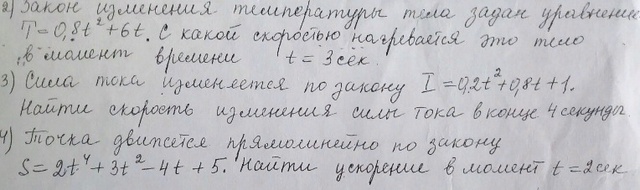 2) Закон изменения температуры тела задан уравнением
T=0,8t²+6t. С какой скоростью нагревается это тело
в момент времени t=3сек.
3) Сила тока изменяется по закону I=0,2t²+0,8t+1.
Найти скорость изменения силы тока в конце 4 секунды
4) Точка движется прямолинейно по закону
S=2t⁴+3t²-4t+5. Найти ускорение в момент t=2сек